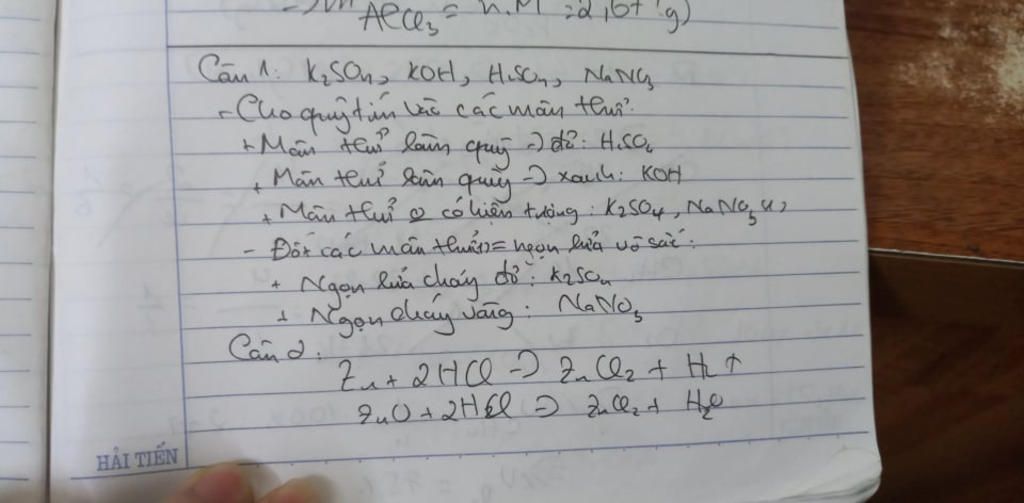 AlCl₃ = n.M = 2,67 (g)
Câu 1: K₂SO₄, KOH, H₂SO₄, NaNO₃
- Cho quỳ tím vào các mẫu thử:
+ Mẫu thử làm quỳ → đỏ: H₂SO₄
+ Mẫu thử làm quỳ → xanh: KOH
+ Mẫu thử ko có hiện tượng: K₂SO₄, NaNO₃ (1)
- Đốt các mẫu thử (1) = ngọn lửa vô sắc:
+ Ngọn lửa cháy đỏ: K₂SO₄
+ Ngọn cháy vàng: NaNO₃
Câu 2:
Zn + 2HCl → ZnCl₂ + H₂ ↑
ZnO + 2HCl → ZnCl₂ + H₂O
HẢI TIẾN